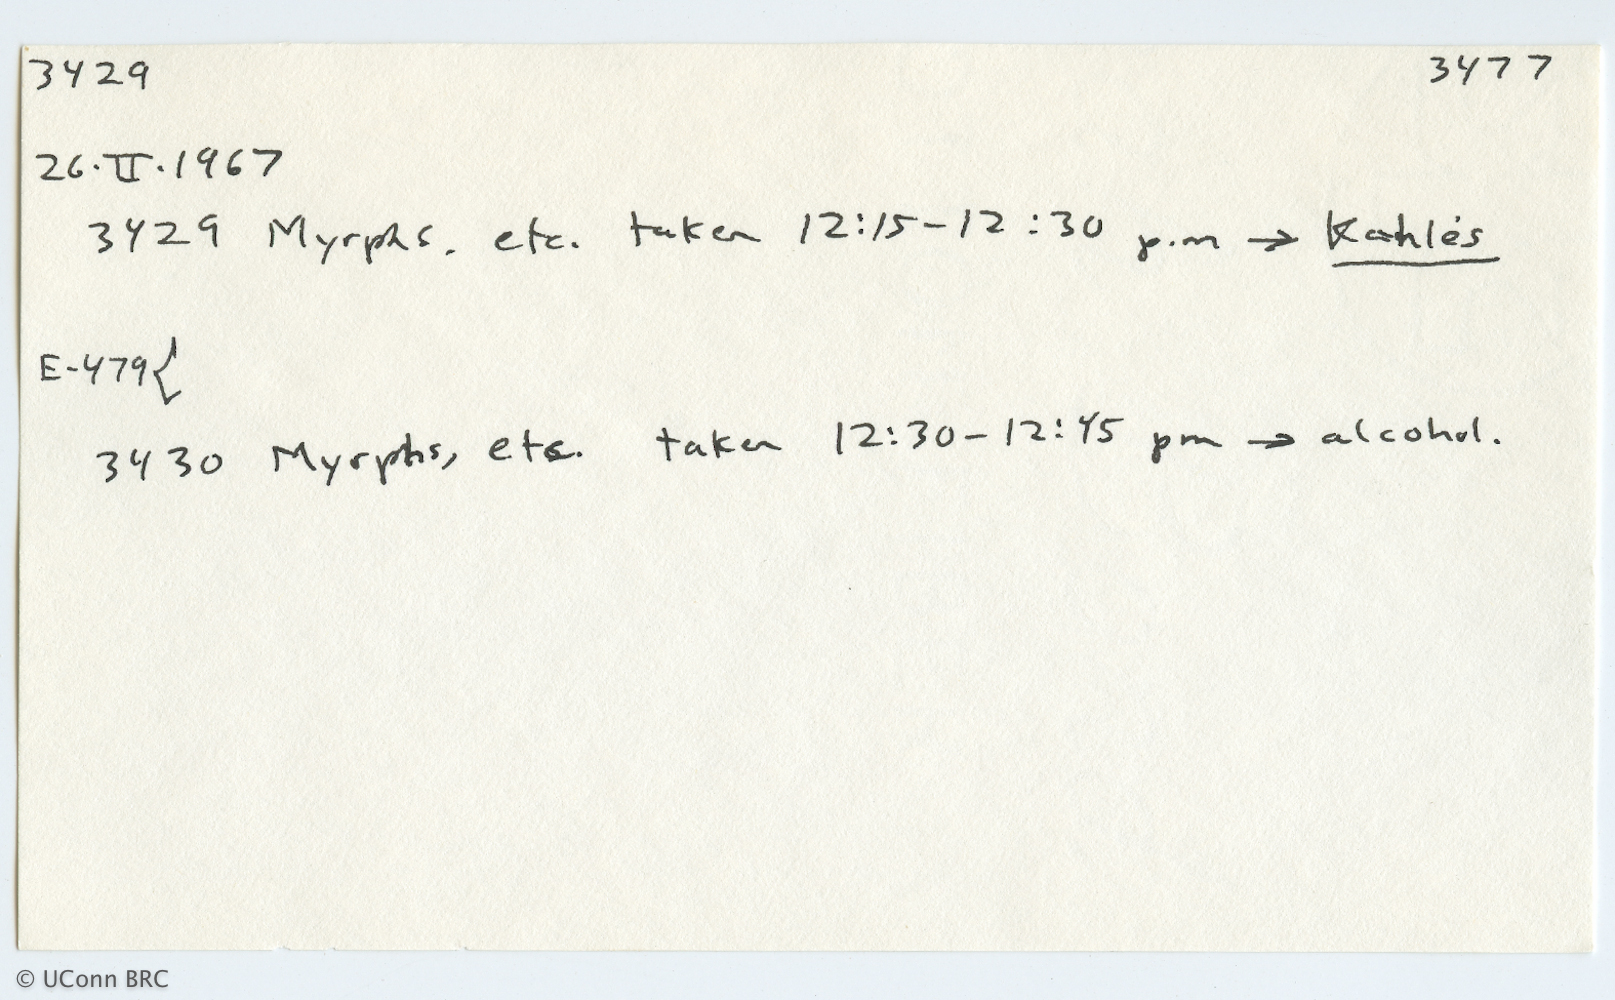 3429 3477
26.II.1967
3429 Myrphs. etc. taken 12:15-12:30 p.m → Kahle's
E-479{
3430 Myrphs, etc. taken 12:30-12:45 pm → alcohol.
© UConn BRC